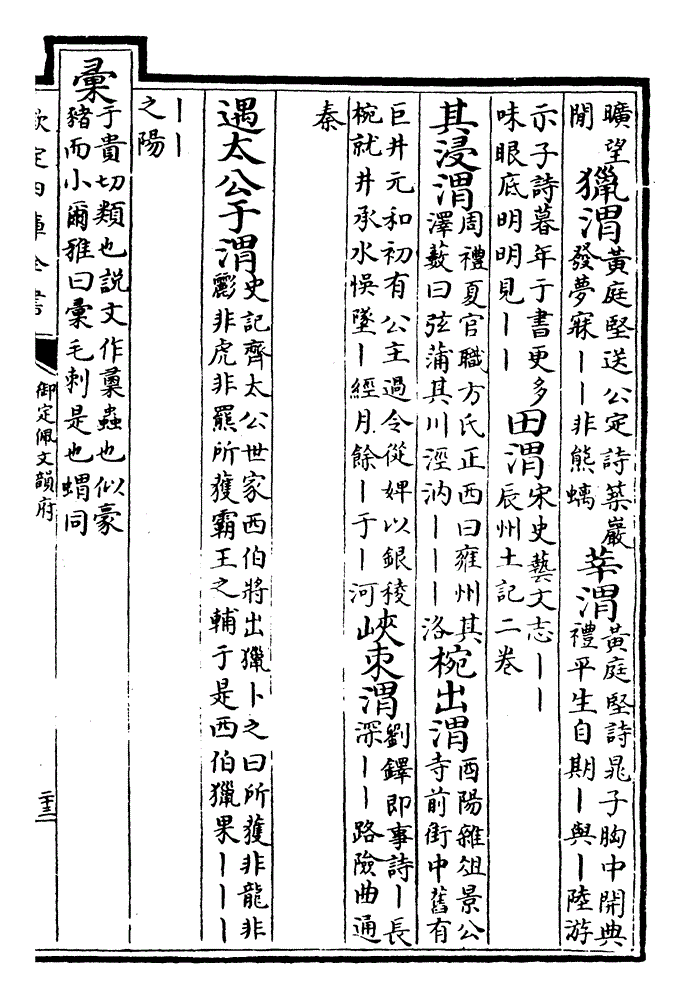 曠望閒獵渭黃庭堅送公定詩築巖發夢寐丨丨非熊螭莘渭黃庭堅詩晁子胸中開典禮平生自期丨與丨陸游
示子詩暮年于書更多味眼底明明見丨丨田渭宋史藝文志丨丨辰州土記二卷
其浸渭周禮夏官職方氏正西曰雍州其澤藪曰弦蒲其川涇汭丨丨丨洛椀出渭酉陽雜俎景公寺前街中舊有
巨井元和初有公主過令從婢以銀稜椀就井承水悞墜丨經月餘丨于丨河峽束渭劉鐸即事詩丨長深丨丨路險曲通
秦
遇太公于渭史記齊太公世家西伯將出獵卜之曰所獲非龍非彲非虎非羆所獲霸王之輔于是西伯獵果丨丨丨
丨丨之陽
彙于貴切類也說文作𧑈蟲也似豪豬而小爾雅曰彙毛刺是也蝟同
欽定四庫全書
御定佩文韻府
二十三